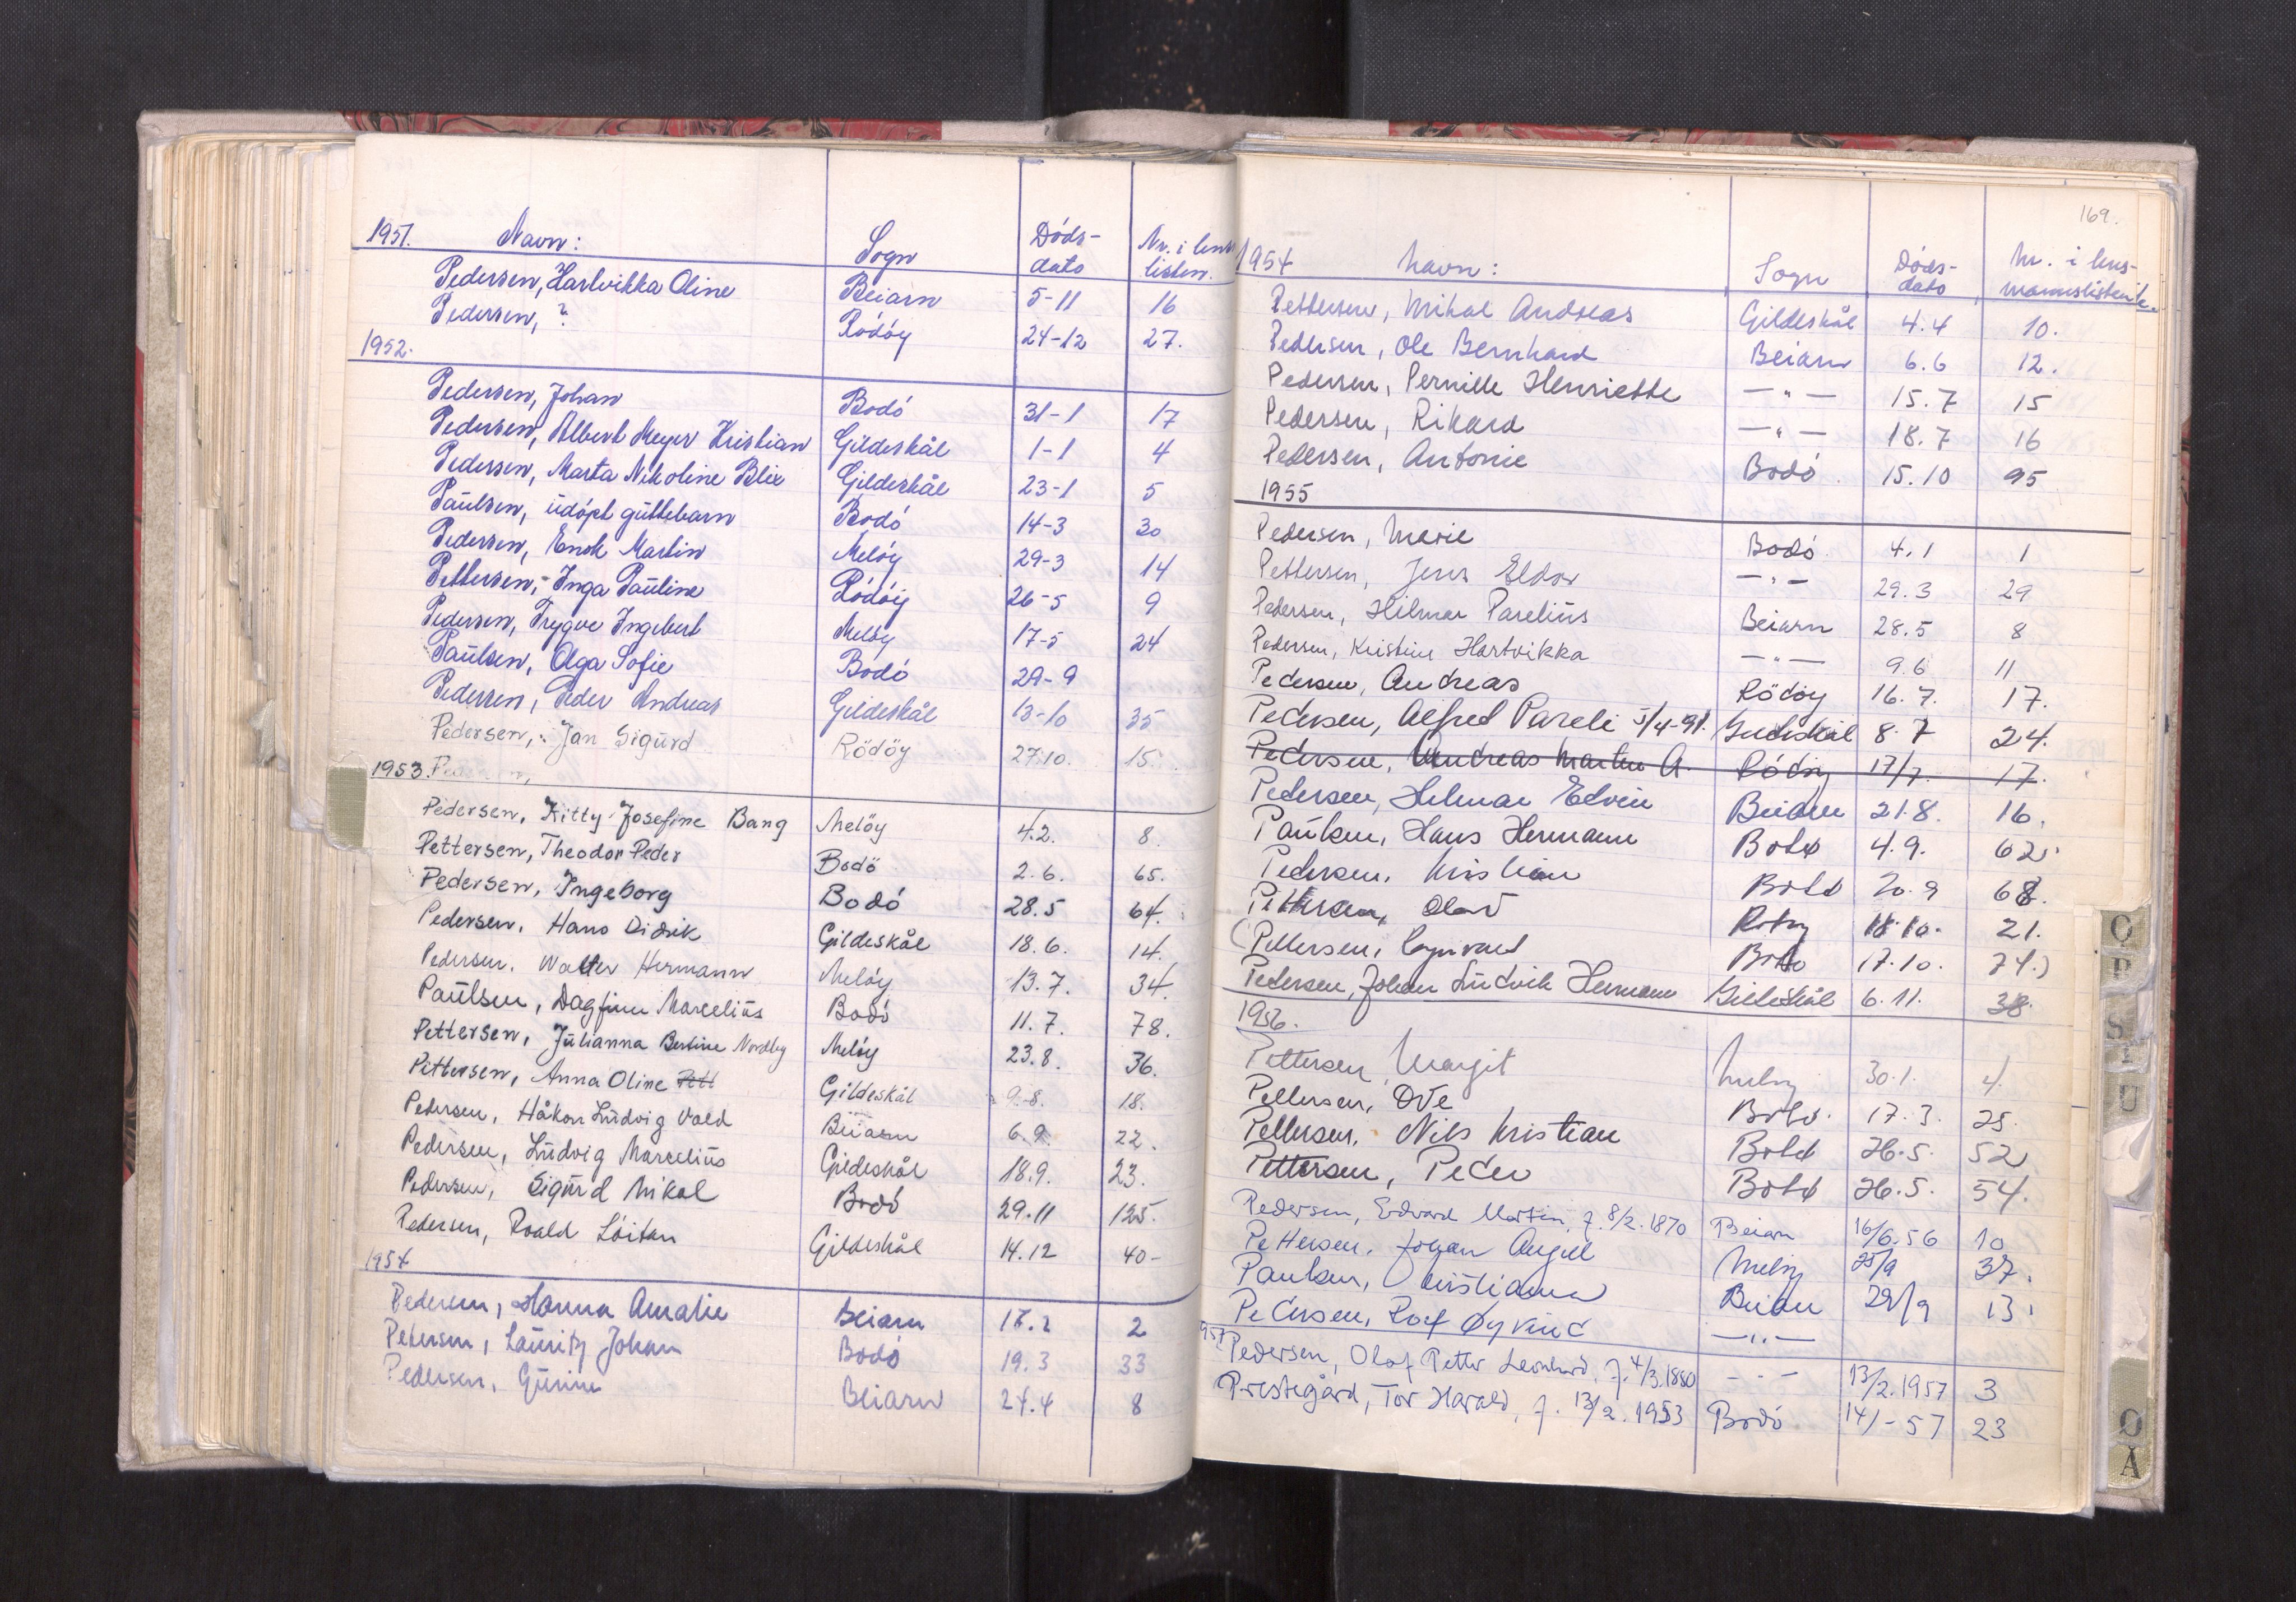 1951. Navn: Sogn Døds- dato Nr. i lens listen.
Pedersen, Hartvikka Oline Beiarn 5-11 16
Pedersen, ? Rödöy 24-12 27.
1952.
Pedersen, Johan Bodó 31-1 17
Pedersen, Albert Meyer Kristian Gildeskål 1-1 4
Pedersen, Marta Nikoline Blix Gildeskål 23-1 5
Paulsen, udópt guttebarn Bodó 14-3 30
Pedersen, Enok Martin Melóy 29-3 14
Pettersen, Inga Pauline Ródóy 26-5 9
Pedersen, Trygve Ingebert Melóy 17-5 24
Paulsen, Olga Sofie Bodó 29-9
Pedersen, Peder Andreas Gildeskål 13-10 35
Pedersen, Jan Sigurd Rödöy 27.10. 15.
1953.
Pedersen, Kitty Josefine Bang Melöy 4.2. 8.
Pettersen, Theodor Peder Bodö 2.6. 65.
Pedersen, Ingeborg Bodó 28.5 64.
Pedersen, Hans Didrik Gildeskål 18.6. 14.
Pedersen, Walter Hermann Melóy 13.7. 34.
Paulsen, Dagfinn Marcelius Bodó 11.7. 78.
Pettersen, Julianna Bertine Nordby Melóy 23.8. 36.
Pettersen, Anna Oline Pett Gildeskål 9.8. 18.
Pedersen, Håkon Ludvig Vold Beiarn 6.9. 22.
Pedersen, Ludvig Marcelius Gildeskål 18.9. 23.
Pedersen, Sigurd Mikal Bodó 29.11 125.
Pedersen, Roald Löitan Gildeskål 14.12 40-
1954
Pedersen, Hanna Amalie Beiarn 17.2 2
Pedersen, Lauritz Johan Bodó 19.3 33
Pedersen, Gurine Beiarn 24.4 8
169.
1954 Navn: Sogn Døds- dato Nr. i lens- mannslistene.
Pettersen, Mikal Andreas Gildeskål 4.4 10.
Pedersen, Ole Bernhard Beiarn 6.6 12.
Pedersen, Pernille Henriette — " — 15.7 15
Pedersen, Rikard — " — 18.7 16
Pedersen, Antonie Bodó 15.10 95
1955
Pedersen, Marie Bodó 4.1 1
Pettersen, Jens Eldor — " — 29.3 29
Pedersen, Hilmar Parelius Beiarn 28.5 8
Pedersen, Kristine Hartvikka — " — 9.6 11
Pedersen, Andreas Rödöy 16.7. 17.
Pedersen, Alfred Pareli 5/4-91. Gildeskål 8.7 24.
Pedersen, Andreas Martin A. Ródóy 17/7. 17.
Pedersen, Helmar Edvin Beiarn 21.8. 16.
Paulsen, Hans Hermann Bodø 4.9. 62.
Pedersen, Kristian Bodø 20.9 68.
Pettersen, Olav Rödöy 18.10. 21.
(Pettersen, Bodø 17.10. 74.)
Pedersen, Johan Ludvik Hermann Gildeskål 6.11. 38.
1956.
Pettersen, Margit Melöy 30.1. 4.
Pettersen, Ove Bodø. 17.3. 25.
Pettersen, Nils Kristian Bodø 26.5. 52
Pettersen, Peder Bodø 26.5. 54.
Pedersen, Edvard Martin, f. 8/2.1870 Beiarn 16/6.56 10
Pettersen, Johan Angell Melöy 25/9 37.
Paulsen, Kristianna Beiarn 29/9 13.
Pedersen, Rolf Øyvind — " —
1957 Pedersen, Olaf Petter Leonhard, f. 4/3.1880 — " — 13/2.1957 3
Prestegård, Tor Harald, f. 13/2.1953 Bodó 14/-57 23
O
P
S
T
U
Ø
Å